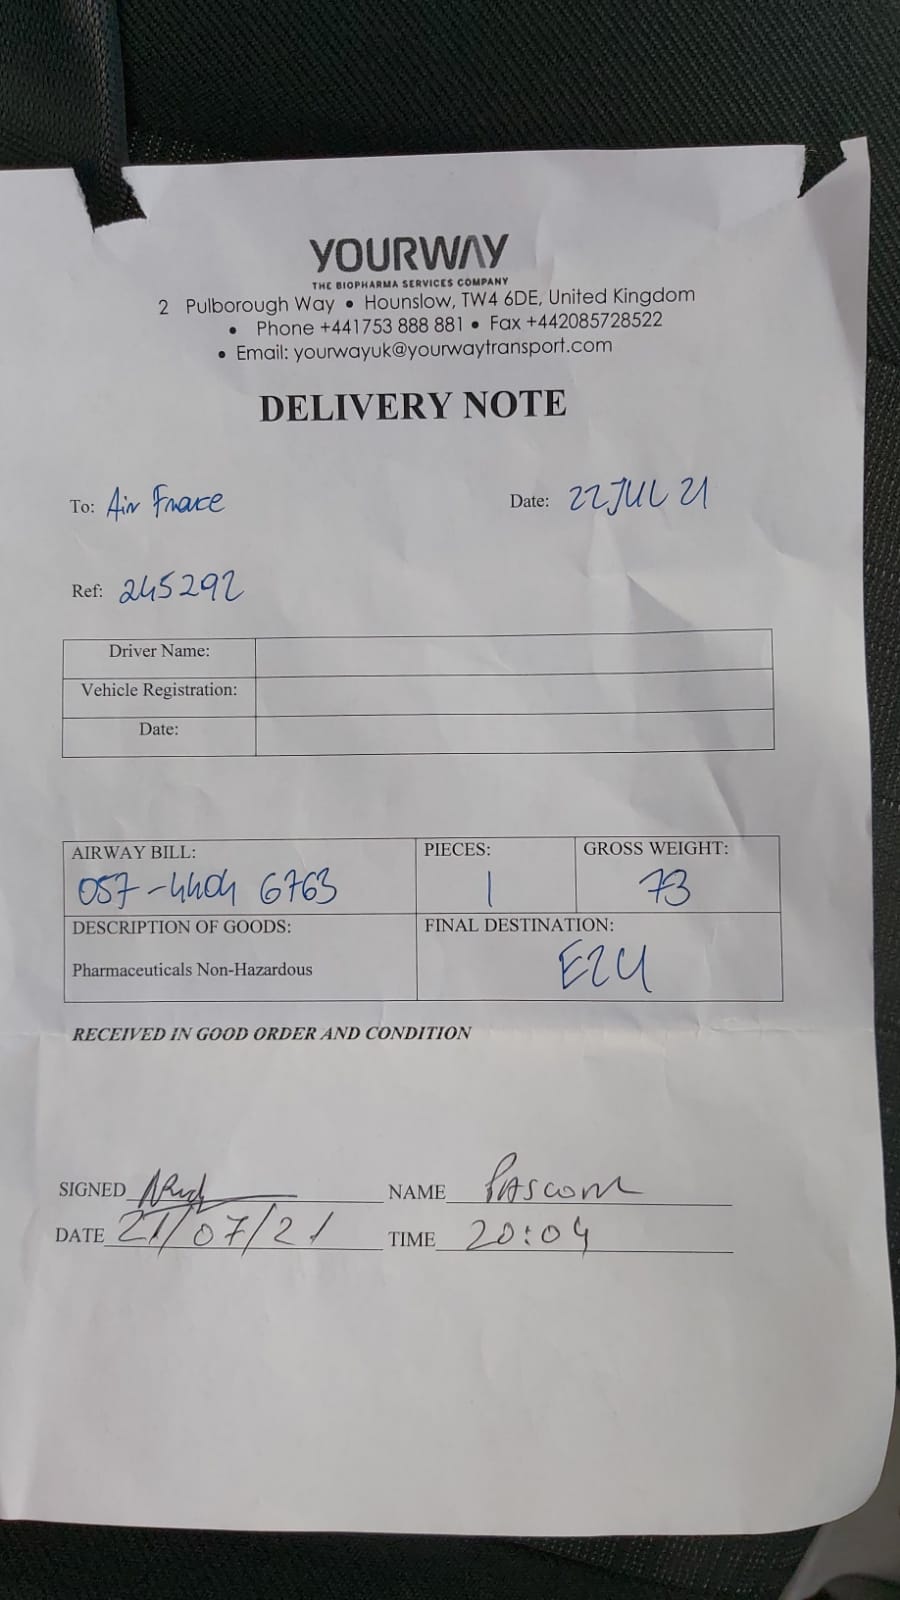 YOURWAY
THE BIOPHARMA SERVICES COMPANY
2 Pulborough Way • Hounslow, TW4 6DE, United Kingdom
• Phone +441753 888 881 • Fax +442085728522
• Email: yourwayuk@yourwaytransport.com
DELIVERY NOTE
To: Air Frnace Date: 22 JUL 21
Ref: 245292
Driver Name:
Vehicle Registration:
Date:
AIRWAY BILL: PIECES: GROSS WEIGHT:
057-4404 6763 1 73
DESCRIPTION OF GOODS: FINAL DESTINATION:
Pharmaceuticals Non-Hazardous EZU
RECEIVED IN GOOD ORDER AND CONDITION
SIGNED NAME
DATE 21/07/21 TIME 20:04